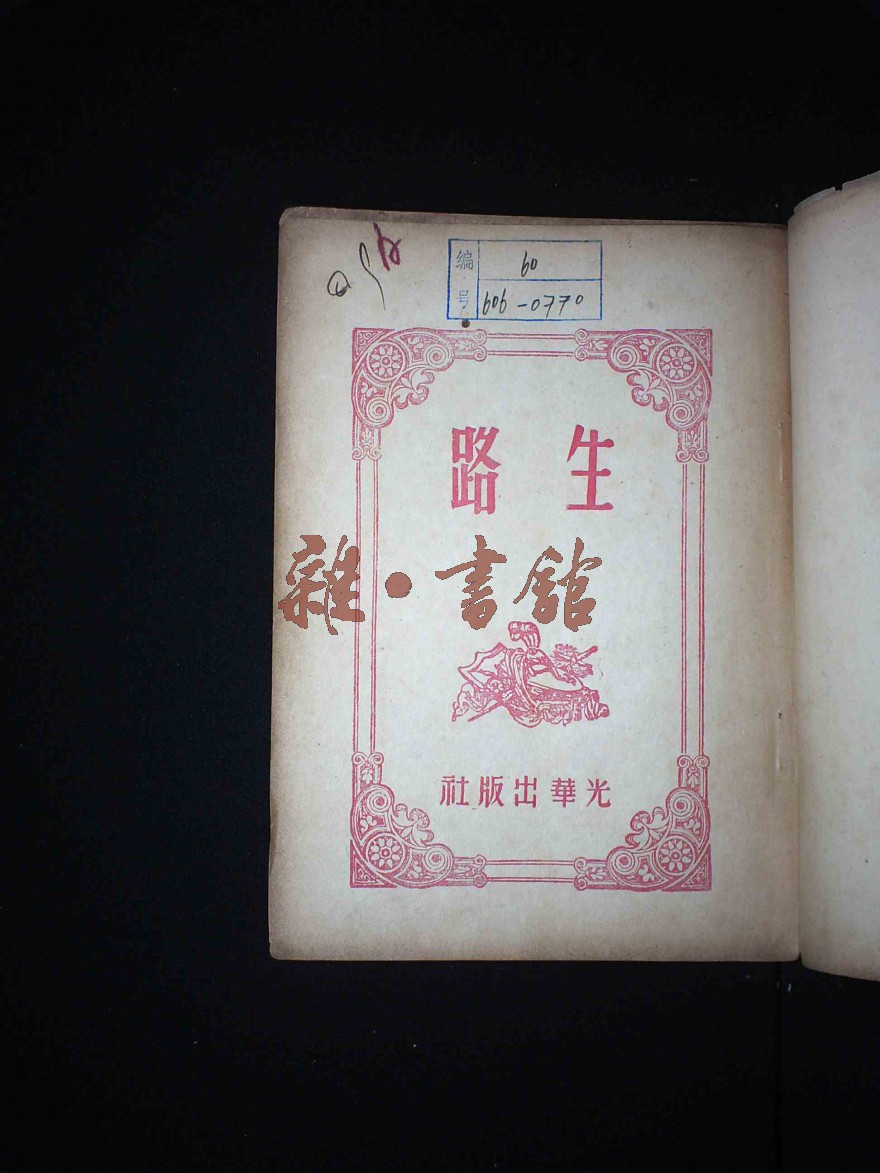 编号
60
606-0770
生路
雜·書館
光華出版社